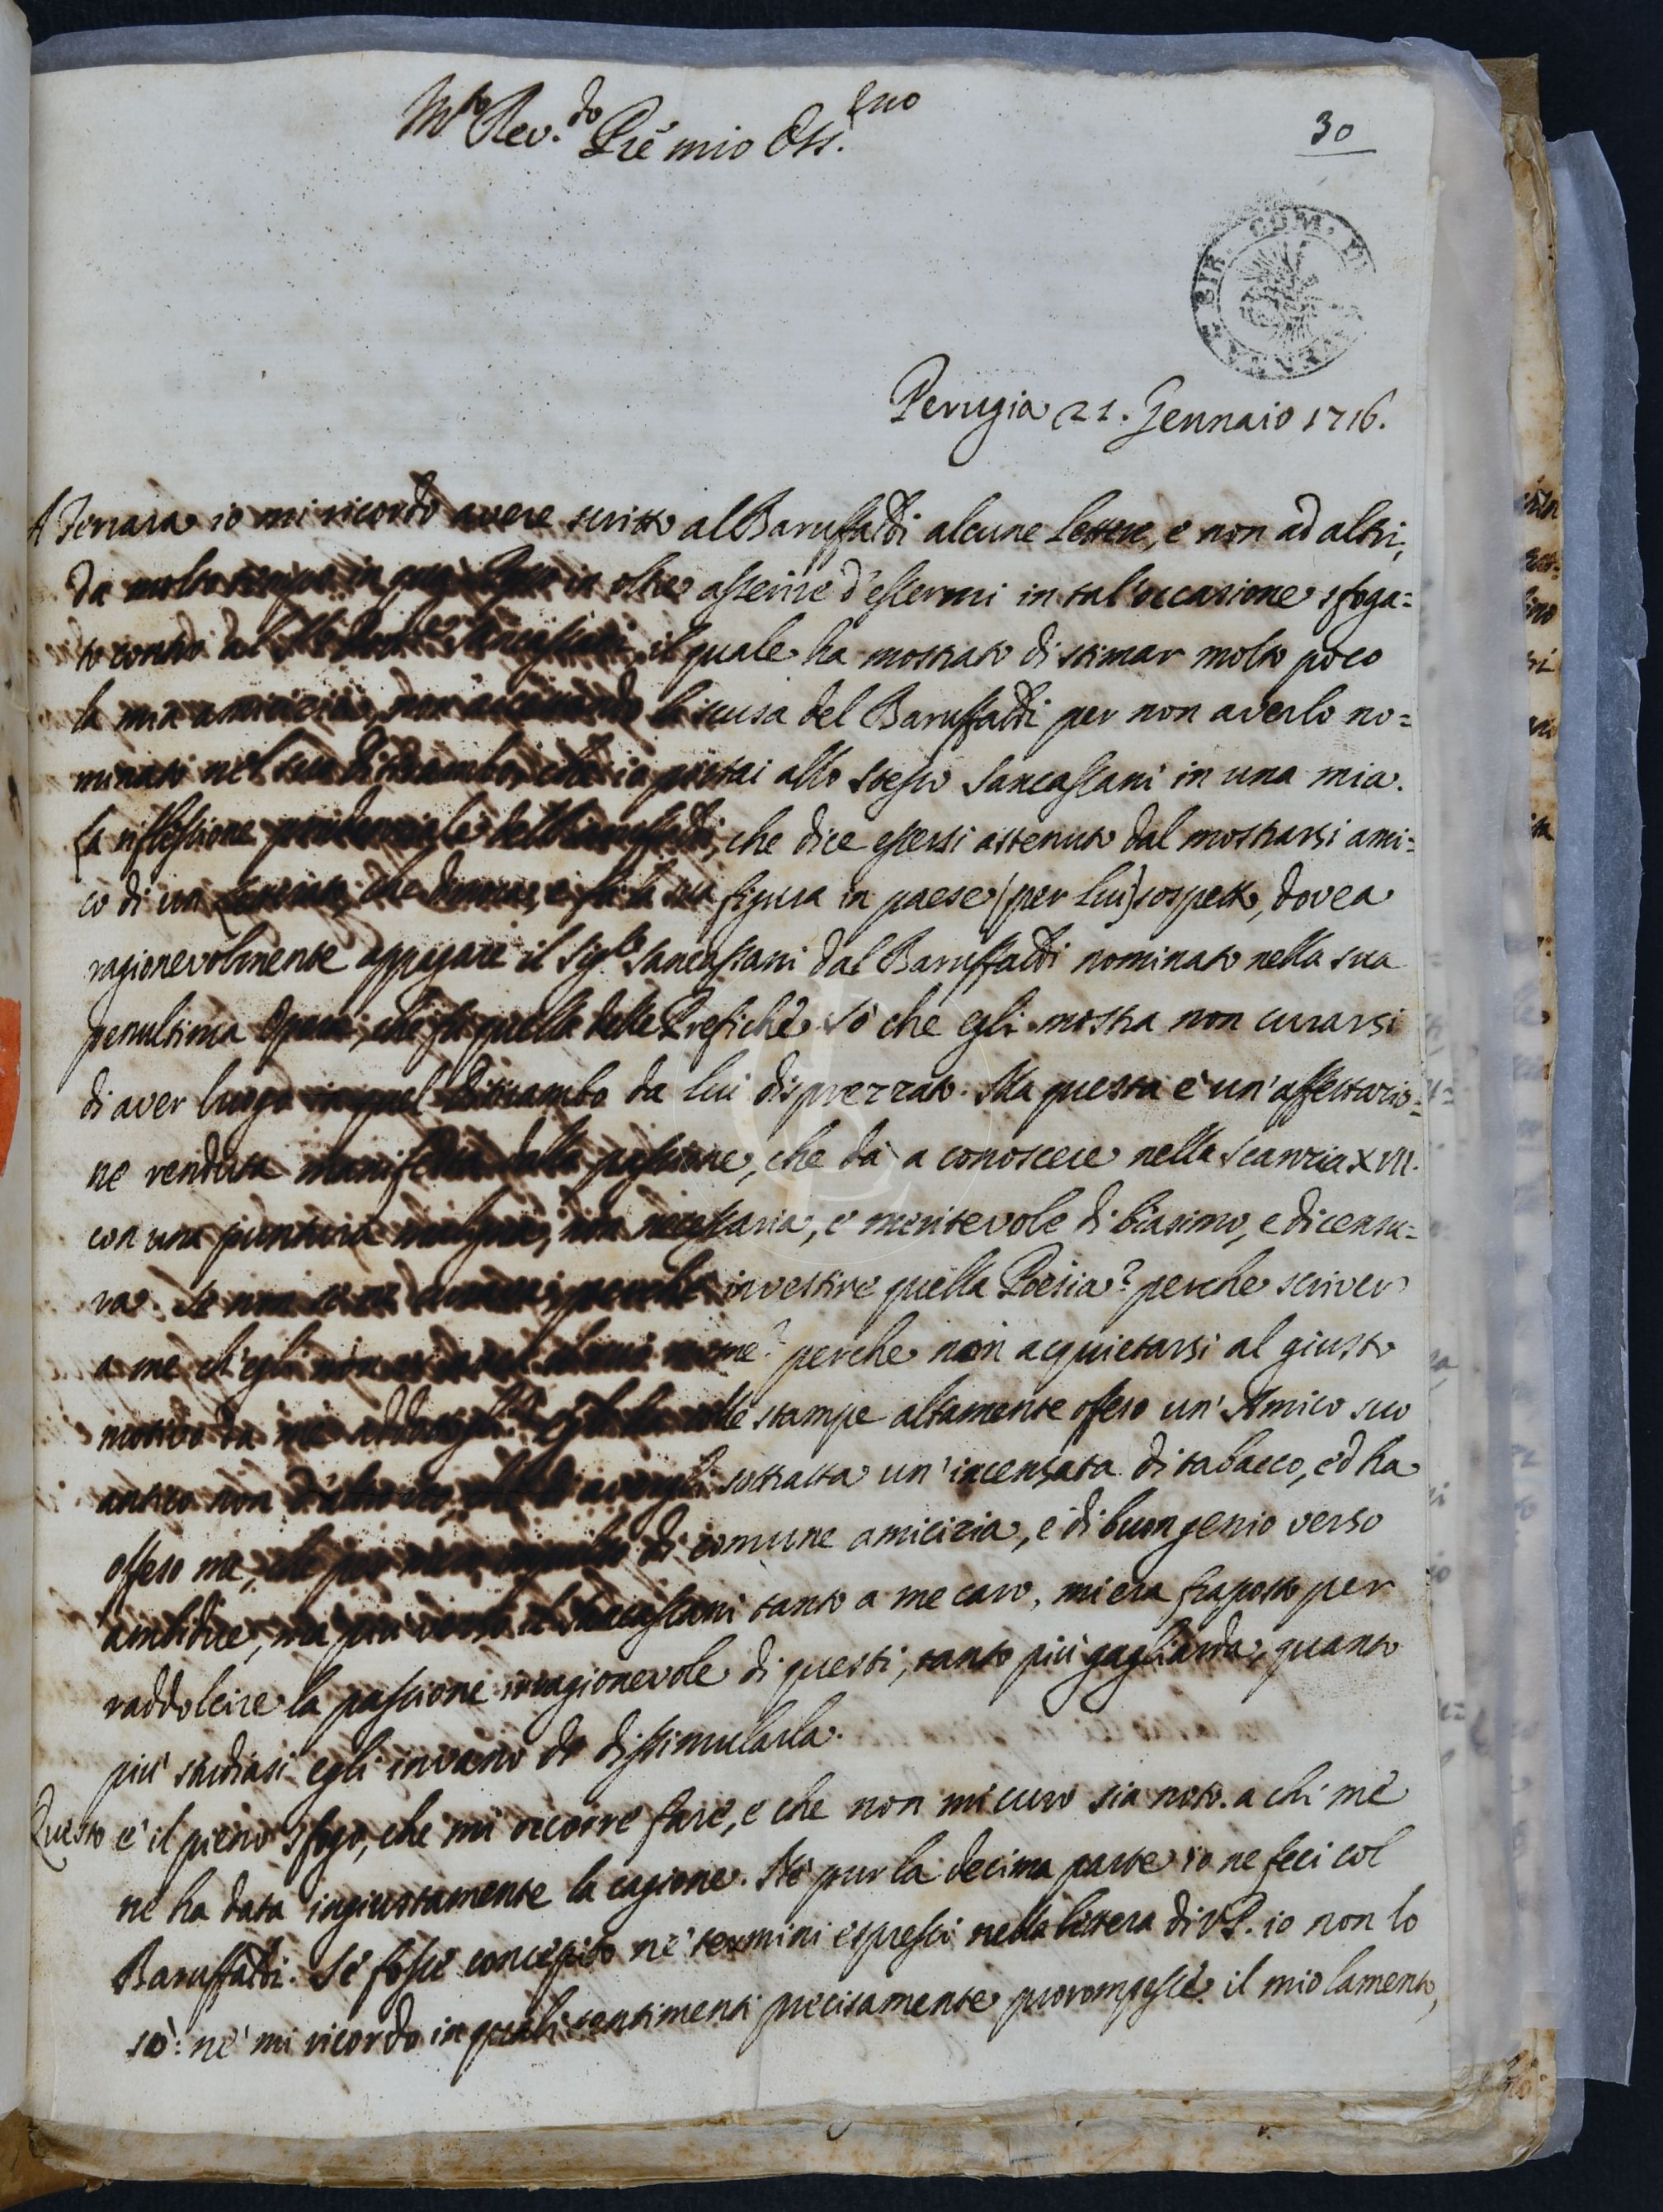 M.to Rev.do P.re mio Oss.mo
30
BIB. COM.
Perugia 21. Gennaio 1716.
A Ferrara io mi ricordo avere scritto al Baruffaldi alcune Lettere, e non ad altri,
da molto tempo in qua in oltre asserire d'essermi in tal'occasione sfoga=
to contro del Sancassani il quale ha mostrato di stimar molto poco
la mia amicizia, non accettando la scusa del Baruffaldi per non averlo no=
minato nel suo Ditirambo, che io portai allo stesso Sancassani in una mia.
La riflessione del Baruffaldi, che dice essersi astenuto dal mostrarsi ami=
co di un che dimora, e fà la sua figura in paese (per lui) sospetto, dovea
ragionevolmente appagare il Sig.re Sancassani dal Baruffaldi nominato nella sua
penultima Opera, che fu quella delle Prefiche. Sò che egli mostra non curarsi
di aver luogo in quel Ditirambo da lui disprezzato. Ma questa è un'affettazio=
ne renduta manifesta dalla passione, che dà a conoscere nella Scanzia XVII.
con una puntura maligna, non necessaria, e meritevole di biasimo, e di censu=
ra. Se non se ne perche investire quella Poesia? perche scriver
a me ch'egli non nome? perche non acquietarsi al giusto
motivo da me Egli ha colle stampe altamente offeso un'Amico suo
antico non d'altro reo, che di avergli sottratta un'incensata di tabacco, ed ha
offeso me, che per mero impulso di comune amicizia, e di buon genio verso
ambidue, ma più verso il Sancassani tanto a me caro, mi era fraposto per
raddolcire la passione irragionevole di questi, tanto più gagliarda, quanto
più studiasi egli invano di dissimularla.
Questo è il pieno sfogo, che mi occorre fare, e che non mi curo sia noto a chi me
ne ha data ingiustamente la cagione. Nè pur la decima parte io ne feci col
Baruffaldi. Se fosse concepito ne' termini espressi nella lettera di V.P. io non lo
sò: nè mi ricordo in quali sentimenti precisamente prorompesse il mio lamento,